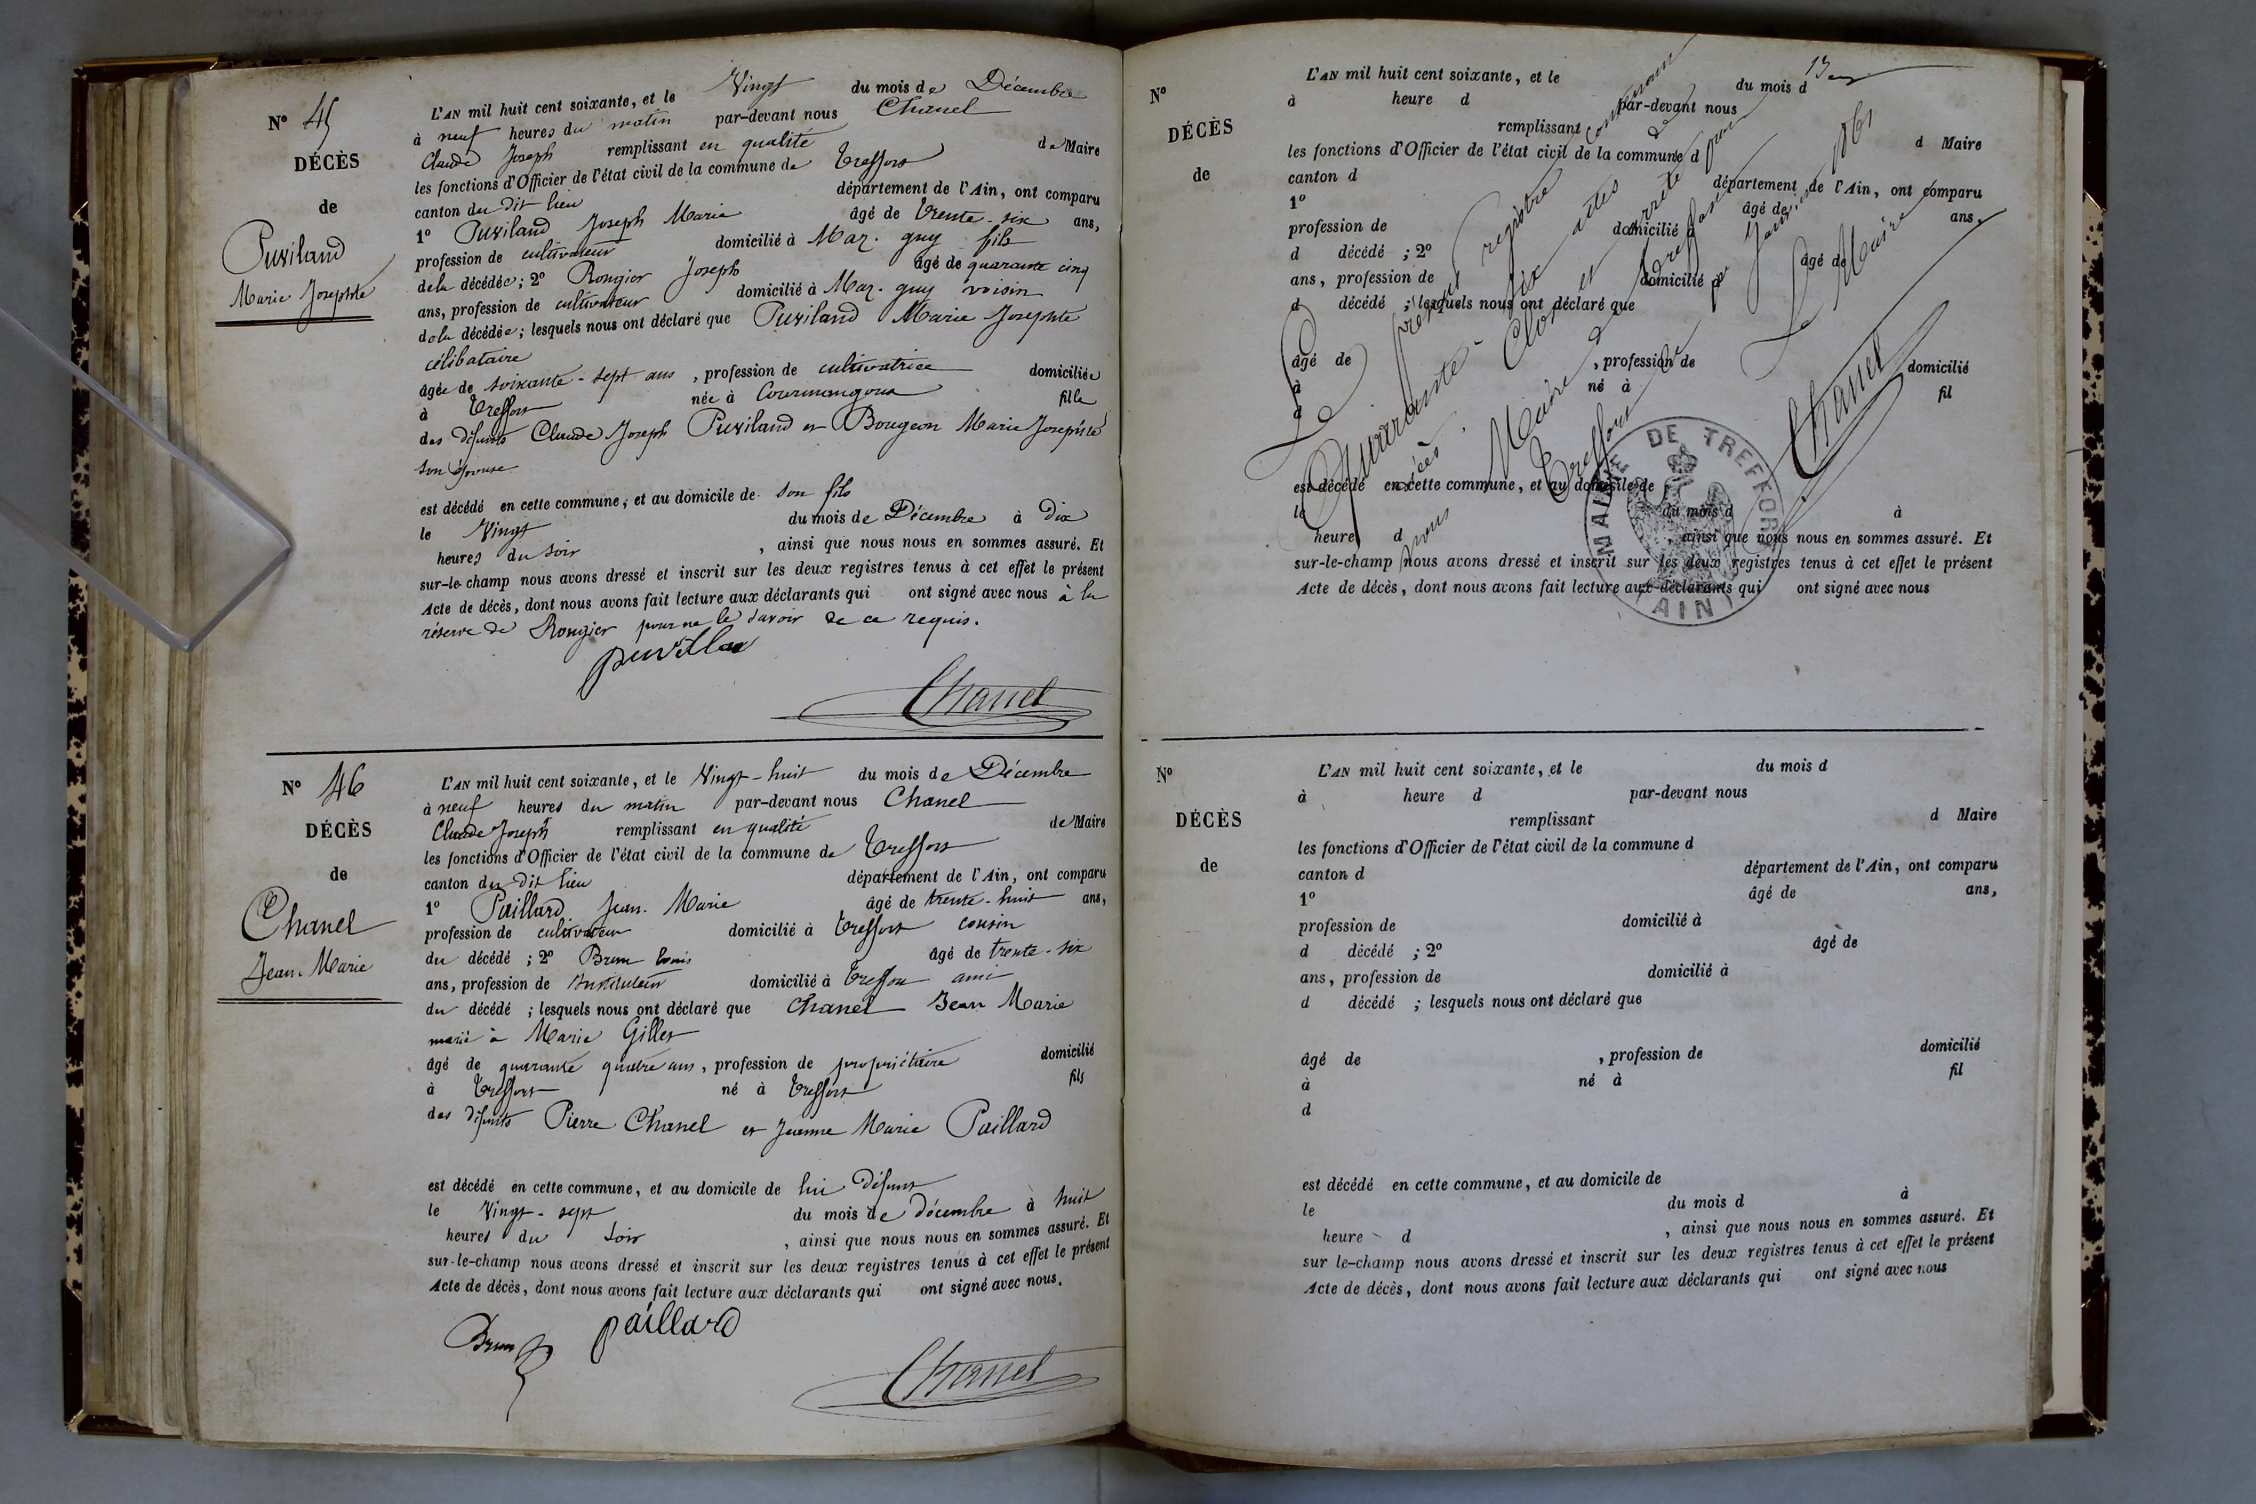 N° 45
DÉCÈS
de
Puvilland
Marie Josephte
L'AN mil huit cent soixante, et le Vingt du mois de Décembre
à neuf heures du matin par-devant nous Chanel
Claude Joseph remplissant en qualité de Maire
les fonctions d'Officier de l'état civil de la commune de Treffort
canton du dit lieu département de l'Ain, ont comparu
1° Puvilland Joseph Marie âgé de trente-six ans,
profession de cultivateur domicilié à Maz. guy fils
de la décédée; 2° Rongier Joseph âgé de quarante cinq
ans, profession de cultivateur domicilié à Maz. guy voisin
de la décédée; lesquels nous ont déclaré que Puvilland Marie Josephte
célibataire
âgée de soixante-sept ans, profession de cultivatrice domiciliée
à Treffort née à Courmangoux fille
des défunts Claude Joseph Puvilland et Bougeon Marie Josephte
son épouse
est décédé en cette commune, et au domicile de son fils
le Vingt du mois de Décembre à Dix
heures du soir, ainsi que nous nous en sommes assuré. Et
sur-le-champ nous avons dressé et inscrit sur les deux registres tenus à cet effet le présent
Acte de décès, dont nous avons fait lecture aux déclarants qui ont signé avec nous à la
réserve de Rongier pour ne le savoir de ce requis.
Chanel
N° 46
DÉCÈS
de
Chanel
Jean-Marie
L'AN mil huit cent soixante, et le Vingt-huit du mois de Décembre
à neuf heures du matin par-devant nous Chanel
Claude Joseph remplissant en qualité de Maire
les fonctions d'Officier de l'état civil de la commune de Treffort
canton du dit lieu département de l'Ain, ont comparu
1° Paillard Jean-Marie âgé de trente-huit ans,
profession de cultivateur domicilié à Treffort cousin
du décédé; 2° Brun Louis âgé de trente-six
ans, profession de Instituteur domicilié à Treffort ami
du décédé; lesquels nous ont déclaré que Chanel Jean Marie
marié à Marie Gillet
âgé de quarante quatre ans, profession de propriétaire domicilié
à Treffort né à Treffort fils
des défunts Pierre Chanel et Jeanne Marie Paillard
est décédé en cette commune, et au domicile de lui Défunt
le Vingt-sept du mois de décembre à huit
heures du soir, ainsi que nous nous en sommes assuré. Et
sur-le-champ nous avons dressé et inscrit sur les deux registres tenus à cet effet le présent
Acte de décès, dont nous avons fait lecture aux déclarants qui ont signé avec nous.
Brun Paillard
Chanel
N°
DÉCÈS
de
L'AN mil huit cent soixante, et le du mois d
à heure d par-devant nous
remplissant d Maire
les fonctions d'Officier de l'état civil de la commune d
canton d département de l'Ain, ont comparu
1° âgé de ans,
profession de domicilié à
d décédé ; 2° âgé de
ans, profession de domicilié à
d décédé ; lesquels nous ont déclaré que
âgé de , profession de domicilié
à né à fil
d
est décédé en cette commune, et au domicile de
le du mois d à
heure d , ainsi que nous nous en sommes assuré. Et
sur-le-champ nous avons dressé et inscrit sur les deux registres tenus à cet effet le présent
Acte de décès, dont nous avons fait lecture aux déclarants qui ont signé avec nous
Le présent registre contenant
Quarante-six actes de
Décès. Clos et arrêté par
nous Maire de
Treffort le Janvier 1861
Le Maire
Chanel
MAIRIE DE TREFFORT
(AIN)
N°
DÉCÈS
de
L'AN mil huit cent soixante, et le du mois d
à heure d par-devant nous
remplissant d Maire
les fonctions d'Officier de l'état civil de la commune d
canton d département de l'Ain, ont comparu
1° âgé de ans,
profession de domicilié à
d décédé ; 2° âgé de
ans, profession de domicilié à
d décédé ; lesquels nous ont déclaré que
âgé de , profession de domicilié
à né à fil
d
est décédé en cette commune, et au domicile de
le du mois d à
heure d , ainsi que nous nous en sommes assuré. Et
sur le-champ nous avons dressé et inscrit sur les deux registres tenus à cet effet le présent
Acte de décès, dont nous avons fait lecture aux déclarants qui ont signé avec nous